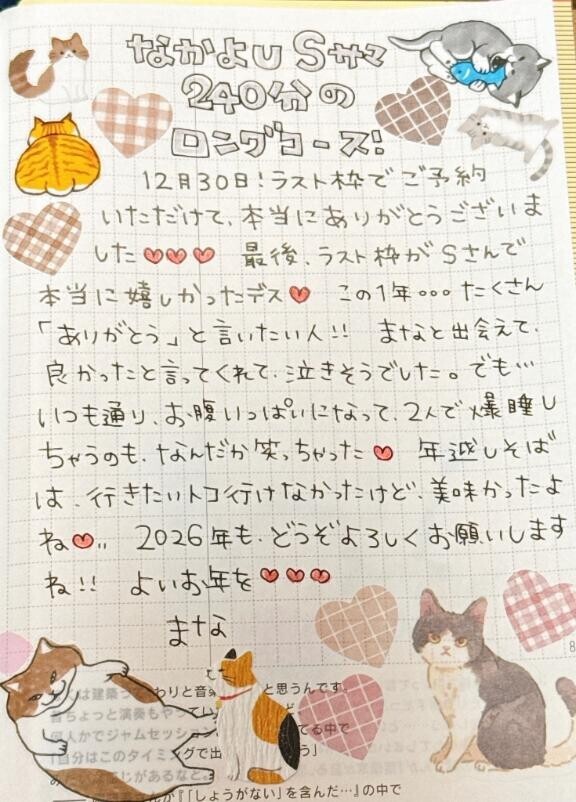 なかよし Sサマ
240分の
ロングコース!
12月30日!ラスト枠でご予約
いただけて、本当にありがとうございま
した♥♥♥ 最後、ラスト枠がSさんで
本当に嬉しかったデス♥ この1年。。。たくさん
「ありがとう」と言いたい人!! まなと出会えて、
良かったと言ってくれて、泣きそうでした。でも…
いつも通り、お腹いっぱいになって、2人で爆睡し
ちゃうのも、なんだか笑っちゃった♥ 年越しそば
は、行きたいトコ行けなかったけど、美味かったよ
ね♥.. 2026年も、どうぞよろしくお願いします
ね!! よいお年を♥♥♥
まな
8
は建築っ わりと音 と思うんです。
ちょっと演奏もやってい
何人かでジャムセッション てる中で
「自分はこのタイミングで出 う」
じがあるなど。
『「しょうがない」を含んだ…』の中で